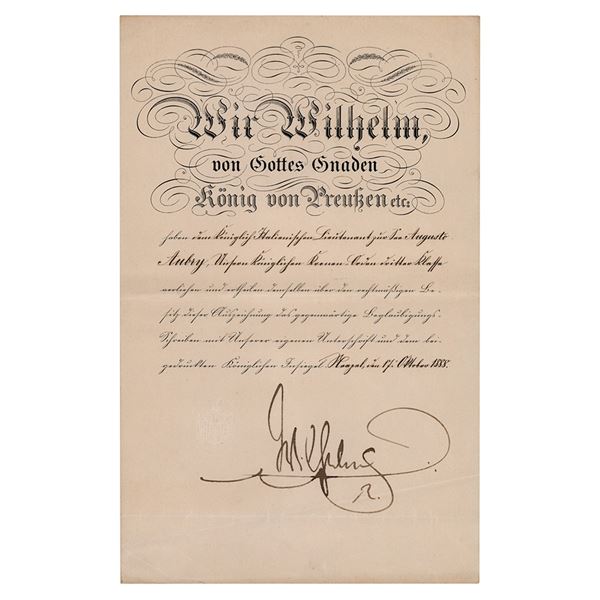 Wir Wilhelm,
von Gottes Gnaden
König von Preußen etc:
haben dem Königlich Italienischen Lieutenant zur See Augusto
Aubry, Unsern Königlichen Kronen-Orden dritter Klasse
verliehen und ertheilen demselben über den rechtmäßigen Be-
sitz dieser Auszeichnung das gegenwärtige Beglaubigungs-
Schreiben mit Unserer eigenen Unterschrift und dem bei-
gedruckten Königlichen Insiegel. Neapel, den 17. Oktober 1888.
Wilhelm
R.